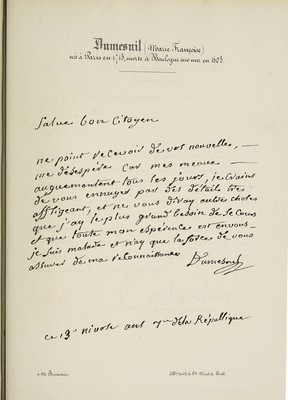 Dumesnil (Marie Françoise)
née à Paris en 1713, morte à Boulogne sur mer en 1803.
Salue bon Citoyen
ne point recevoir de vos nouvelles, —
me désespère car mes meaux —
auguementent tous les jours, je crains
de vous ennuyer par des détails très
affligeant, et ne vous diray autre choses
que j'ay le plus grand besoin de secours
et que toute mon espérence est en vous —
je suis malade et n'ay que la force de vous
assurer de ma reconnaissance
Dumesnil
ce 3e nivose ans 7me de la République